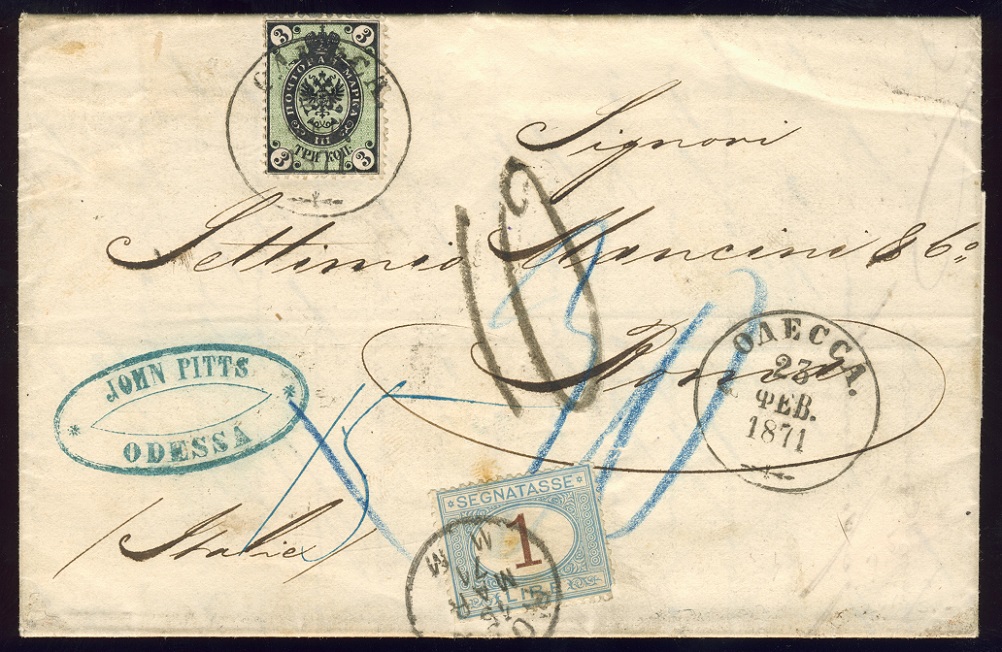 3 3
ПОЧТОВАЯ МАРКА
III
3 ТРИ КОП. 3
Signori
Settimio Mancini & Co
10
ОДЕССА.
23
ФЕВ.
1871
JOHN PITTS
ODESSA
(Italie)
SEGNATASSE
1
LIRE
MAR
71
M